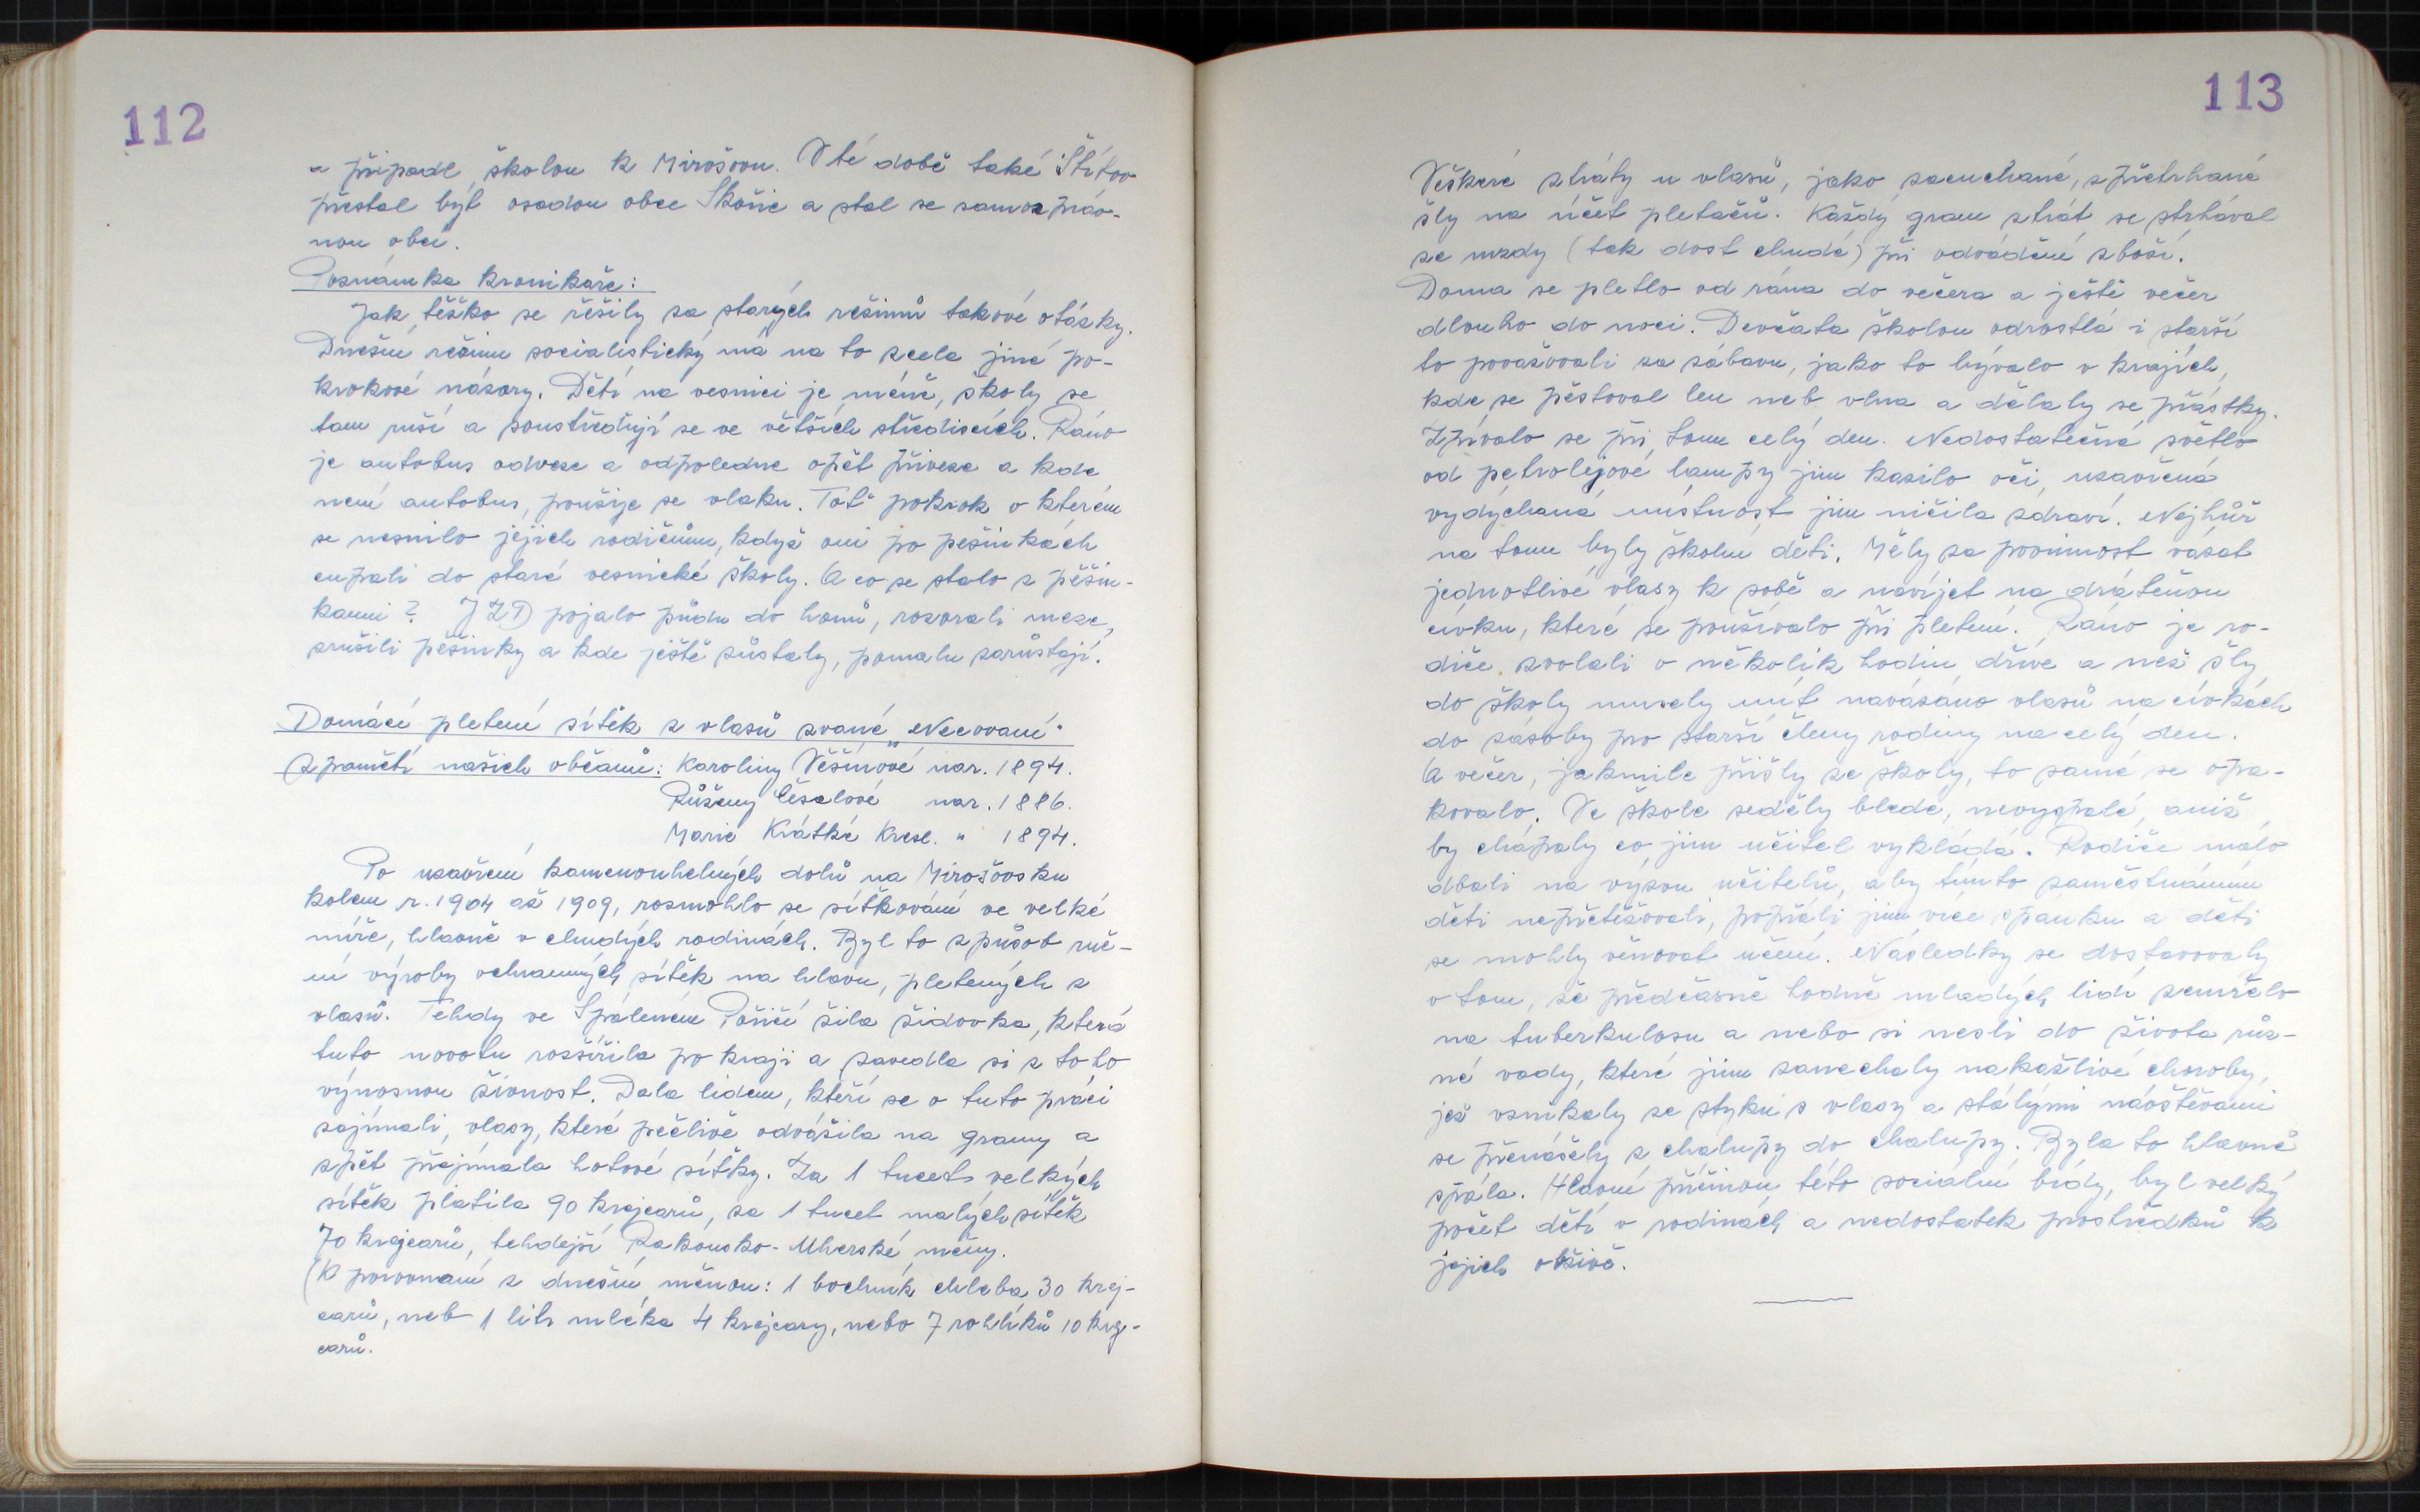 112
a připadl školou k Mirošovu. V té době také Štítov
přestal být osadou obce Skořic a stal se samospráv-
nou obcí.
Poznámka kronikáře:
Jak těžko se řešily za starých režimů takové otázky.
Dnešní režim socialistický má na to zcela jiné po-
krokové názory. Dětí na vesnici je méně, školy se
tam ruší a soustřeďují se ve větších střediscích. Ráno
je autobus odveze a odpoledne opět přiveze a kde
není autobus, použije se vlaku. Toť pokrok o kterém
se nesnilo jejich rodičům, když oni po pěšinkách
cupali do staré vesnické školy. A co se stalo s pěšin-
kami? JZD pojalo půdu do honů, rozorali meze,
zrušili pěšinky a kde ještě zůstaly, pomalu zarůstají.
Domácí pletení sítěk z vlasů zvané „Necování“
Z pamětí našich občanů: Karoliny Věšínové nar. 1894.
Růženy Česalové nar. 1886.
Marie Krátké Kresl. " 1894.
Po uzavření kamenouhelných dolů na Mirošovsku
kolem r. 1904 až 1909, rozmohlo se síťkování ve velké
míře, hlavně v chudých rodinách. Byl to způsob ruč-
ní výroby ochranných sítěk na hlavu, pletených z
vlasů. Tehdy ve Spáleném Poříčí žila židovka, která
tuto novotu rozšířila po kraji a zavedla si z toho
výnosnou živnost. Dala lidem, kteří se o tuto práci
zajímali, vlasy, které pečlivě odvážila na gramy a
zpět přejímala hotové síťky. Za 1 tucet velkých
sítěk platila 90 krejcarů, za 1 tucet malých sítěk
70 krejcarů, tehdejší Rakousko-Uherské měny.
(K porovnání z dnešní měnou: 1 bochník chleba 30 krej-
carů, neb 1 litr mléka 4 krejcary, nebo 7 rohlíků 10 krej-
carů.
113
Veškeré ztráty u vlasů, jako zacuchané, zpřetrhané
šly na účet pletačů. Každý gram ztrát se strhával
ze mzdy (tak dost chudé) při odvádění zboží.
Doma se pletlo od rána do večera a ještě večer
dlouho do noci. Děvčata školou odrostlá i starší
to považovali za zábavu, jako to bývalo v krajích,
kde se pěstoval len neb vlna a dělaly se přástky.
Zpívalo se při tom celý den. Nedostatečné světlo
od petrolejové lampy jim kazilo oči, uzavřená
vydýchaná místnost jim ničila zdraví. Nejhůř
na tom byly školní děti. Měly za povinnost vázat
jednotlivé vlasy k sobě a navíjet na drátěnou
cívku, které se používalo při pletení. Ráno je ro-
diče zvolali o několik hodin dříve a než šly
do školy musely mít navázáno vlasů na cívkách
do zásoby pro starší členy rodiny na celý den.
A večer, jakmile přišly ze školy, to samé se opa-
kovalo. Ve škole seděly bledé, nevyspalé, aniž
by chápaly co jim učitel vykládá. Rodiče málo
dbali na výzvu učitelů, aby tímto zaměstnáním
děti nepřetěžovali, popřáli jim více spánku a děti
se mohly věnovat učení. Následky se dostavovaly
v tom, že předčasně hodně mladých lidí zemřelo
na tuberkulosu a nebo si nesli do života růz-
né vady, které jim zanechaly nakažlivé choroby,
jež vznikaly ze styku s vlasy a stálými návštěvami
se přenášely z chalupy do chalupy. Byla to hlavně
spála. Hlavní příčinou této sociální bídy, byl velký
počet dětí v rodinách a nedostatek prostředků k
jejich obživě.